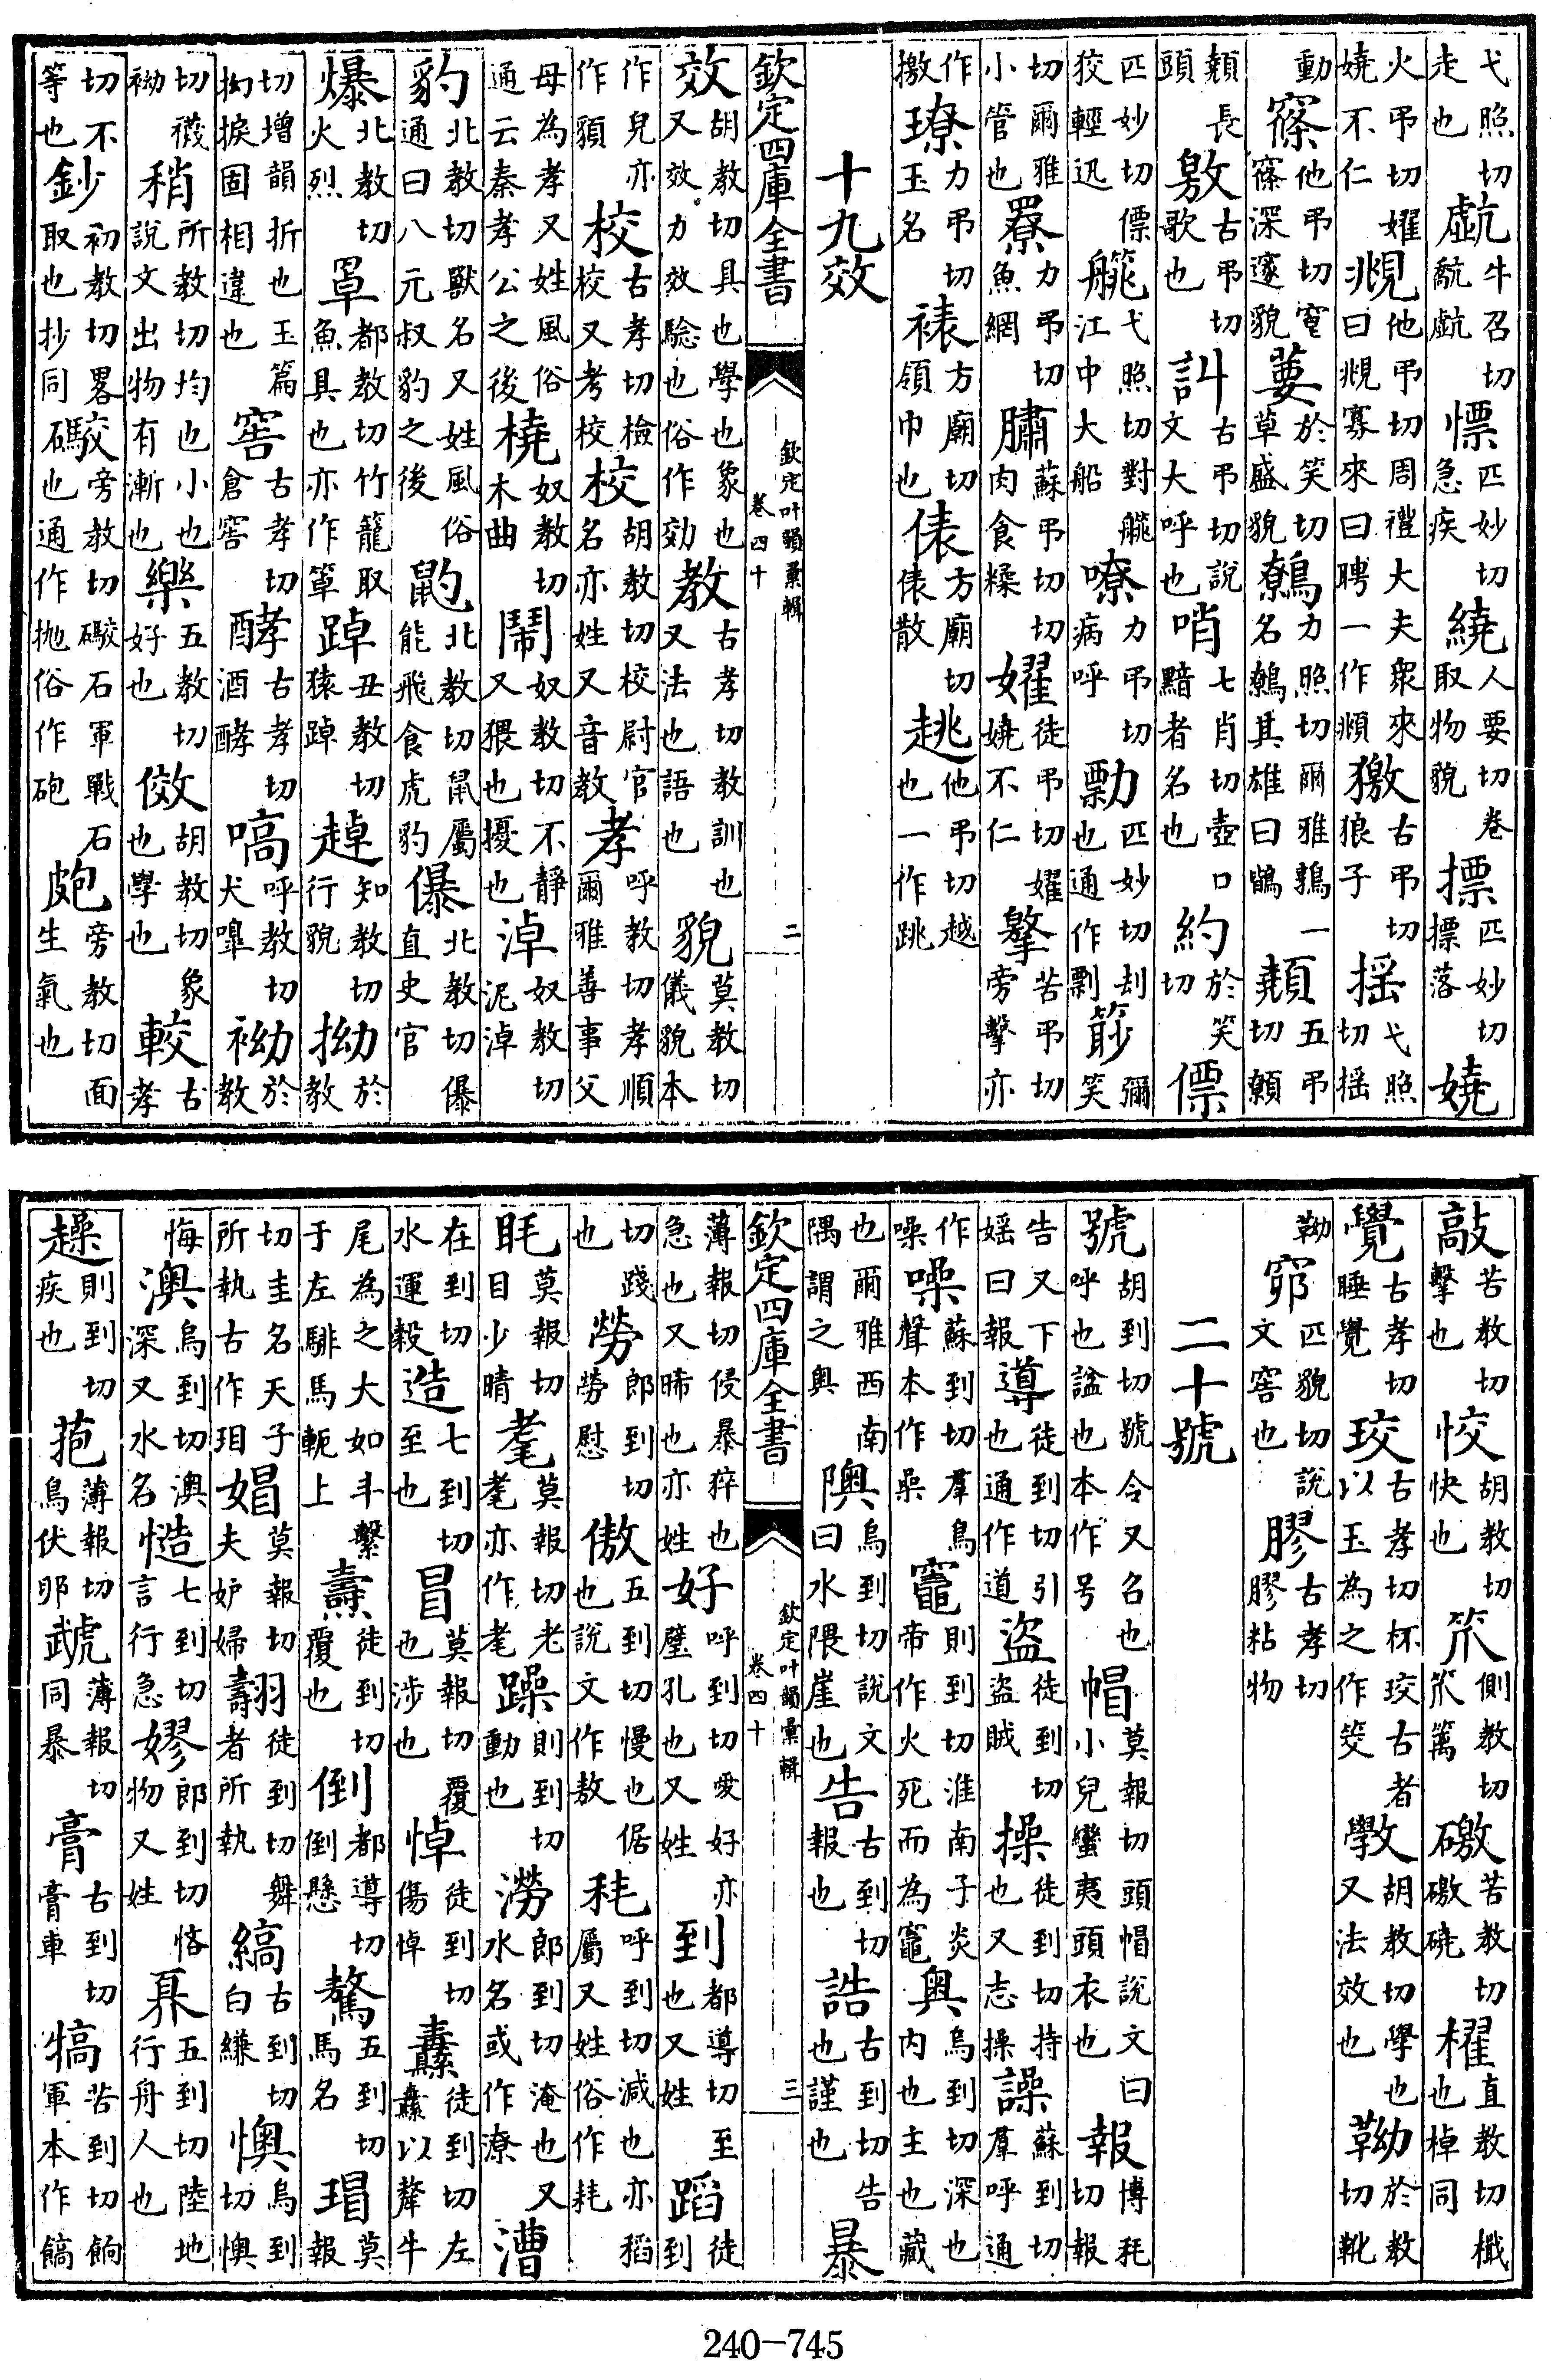 弋照切走也　牛召切慓匹妙切急疾繞人要切卷取物貌摽匹妙切摽落嬈
火弔切嬥嬈不仁覜他弔切周禮大夫衆來曰覜寡來曰聘一作頫獥古弔切狼子搖弋照切搖
動窱他弔切窵窱深邃貌葽於笑切草盛貌鷯力照切爾雅鶉一名鷯其雄曰鶛顤五弔切顤
顤長頭敫古弔切歌也訆古弔切說文大呼也哨七肖切壺口黯者名也約於笑切僄
匹妙切僄狡輕迅艞弋照切對艞江中大船嘹力弔切病呼勡匹妙切刦也通作剽篎彌笑
切爾雅小管也力弔切魚網䐹蘇弔切切肉食糅嬥徒弔切嬥嬈不仁擎苦弔切旁擊亦
作撽璙力弔切玉名裱方廟切領巾也俵方廟切俵散趒他弔切越也一作跳
十九效
欽定四庫全書　欽定叶韻彚輯卷四十　二
效胡教切具也學也象也又效力效驗也俗作効教古孝切教訓也又法也語也貌莫教切儀貌本
作皃亦作䫉校古孝切檢校又考校校胡教切校尉官名亦姓又音教孝呼教切孝順爾雅善事父
母為孝又姓風俗通云秦孝公之後橈奴教切木曲鬧奴教切不靜又猥也擾也淖奴教切泥淖
豹北教切獸名又姓風俗通曰八元叔豹之後䶂北教切鼠屬能飛食虎豹儤北教切儤直史官
爆北教切火烈罩都教切竹籠取魚具也亦作箄踔丑教切猿踔趠知教切行貌拗於教
切增韻折也玉篇拗捩固相違也窖古孝切倉窖酵古孝切酒酵嗃呼教切犬嘷袎於教
切襪袎稍所教切均也小也說文出物有漸也樂五教切好也傚胡教切象也學也較古孝
切不等也鈔初教切畧取也抄同礮旁教切礮石軍戰石也通作抛俗作砲皰旁教切面生氣也
敲苦教切擊也恔胡教切快也笊側教切笊篱礉苦教切礉磽櫂直教切檝也棹同
覺古孝切睡覺珓古孝切杯珓古者以玉為之作筊斆胡教切學也又法效也靿於教切靴
靿窌匹貌切說文窖也膠古孝切膠粘物
二十號
號胡到切號令又召也呼也諡也本作号帽莫報切頭帽說文曰小兒蠻夷頭衣也報博秏切報
告又下婬曰報導徒到切引也通作道盜徒到切盜賊操徒到切持也又志操譟蘇到切羣呼通
作噪噪蘇到切羣鳥聲本作喿竈則到切淮南子炎帝作火死而為竈奧烏到切深也内也主也藏
也爾雅西南隅謂之奧隩烏到切說文曰水隈崖也告古到切報也誥古到切告也謹也暴
欽定四庫全書　欽定叶韻彚輯卷四十　三
薄報切侵暴猝也急也又晞也亦姓好呼到切愛好亦璧孔也又姓到都導切至也又姓蹈徒到
切踐也勞郎到切勞慰傲五到切慢也倨也說文作敖秏呼到切減也亦稻屬又姓俗作耗
眊莫報切目少睛耄莫報切老耄亦作耄躁則到切動也澇郎到切淹也又水名或作潦漕
在到切水運榖造七到切至也冒莫報切覆也涉也悼徒到切傷悼纛徒到切左纛以犛牛
尾為之大如斗繫于左騑馬軛上燾徒到切覆也倒都導切倒懸驁五到切馬名瑁莫報
切圭名天子所執古作玥媢莫報切夫妒婦翿徒到切舞者所執縞古到切白縑懊烏到切懊
悔澳烏到切澳深又水名慥七到切言行急嫪郎到切悋物又姓奡五到切陸地行舟人也
趮則到切疾也菢薄報切鳥伏卵虣薄報切同暴膏古到切膏車犒苦到切餉軍本作䭘
240-745